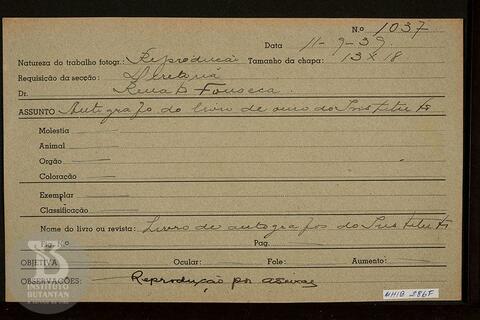 Nº 1037
Data 11-9-39.
Natureza do trabalho fotogr.: Reprodução Tamanho da chapa: 13x18
Requisição da secção: Secretaria
Dr. Fonseca.
ASSUNTO Autografo do livro de ouro do Instituto
Molestia
Animal
Orgão
Coloração
Exemplar
Classificação
Nome do livro ou revista: Livro de autografos do Instituto
Fig. Nº Pag.
OBJETIVA Ocular: Fole: Aumento:
OBSERVAÇÕES: Reprodução por
INSTITUTO
BUTANTAN
MHIB 286F